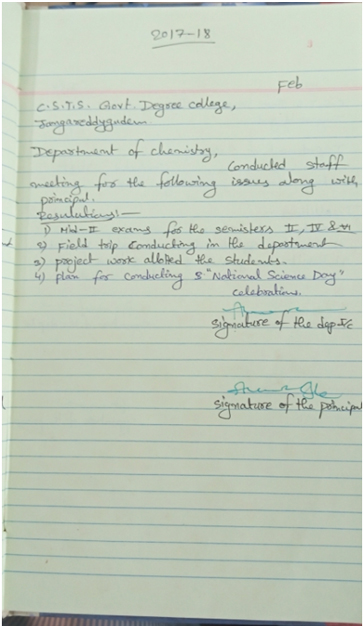 2017-18
Feb
C.S.T.S. Govt Degree college,
Jangareddygudem
Department of chemistry,
Conducted staff
meeting for the following issues along with
principal.
Resulutions:-
1) Mid-II exams for the semisters II, IV & VI
2) field trip conducting in the department
3) project work alloted the students.
4) plan for conducting S "National Science Day"
celebrations.
signature of the dep I/c
signature of the principal